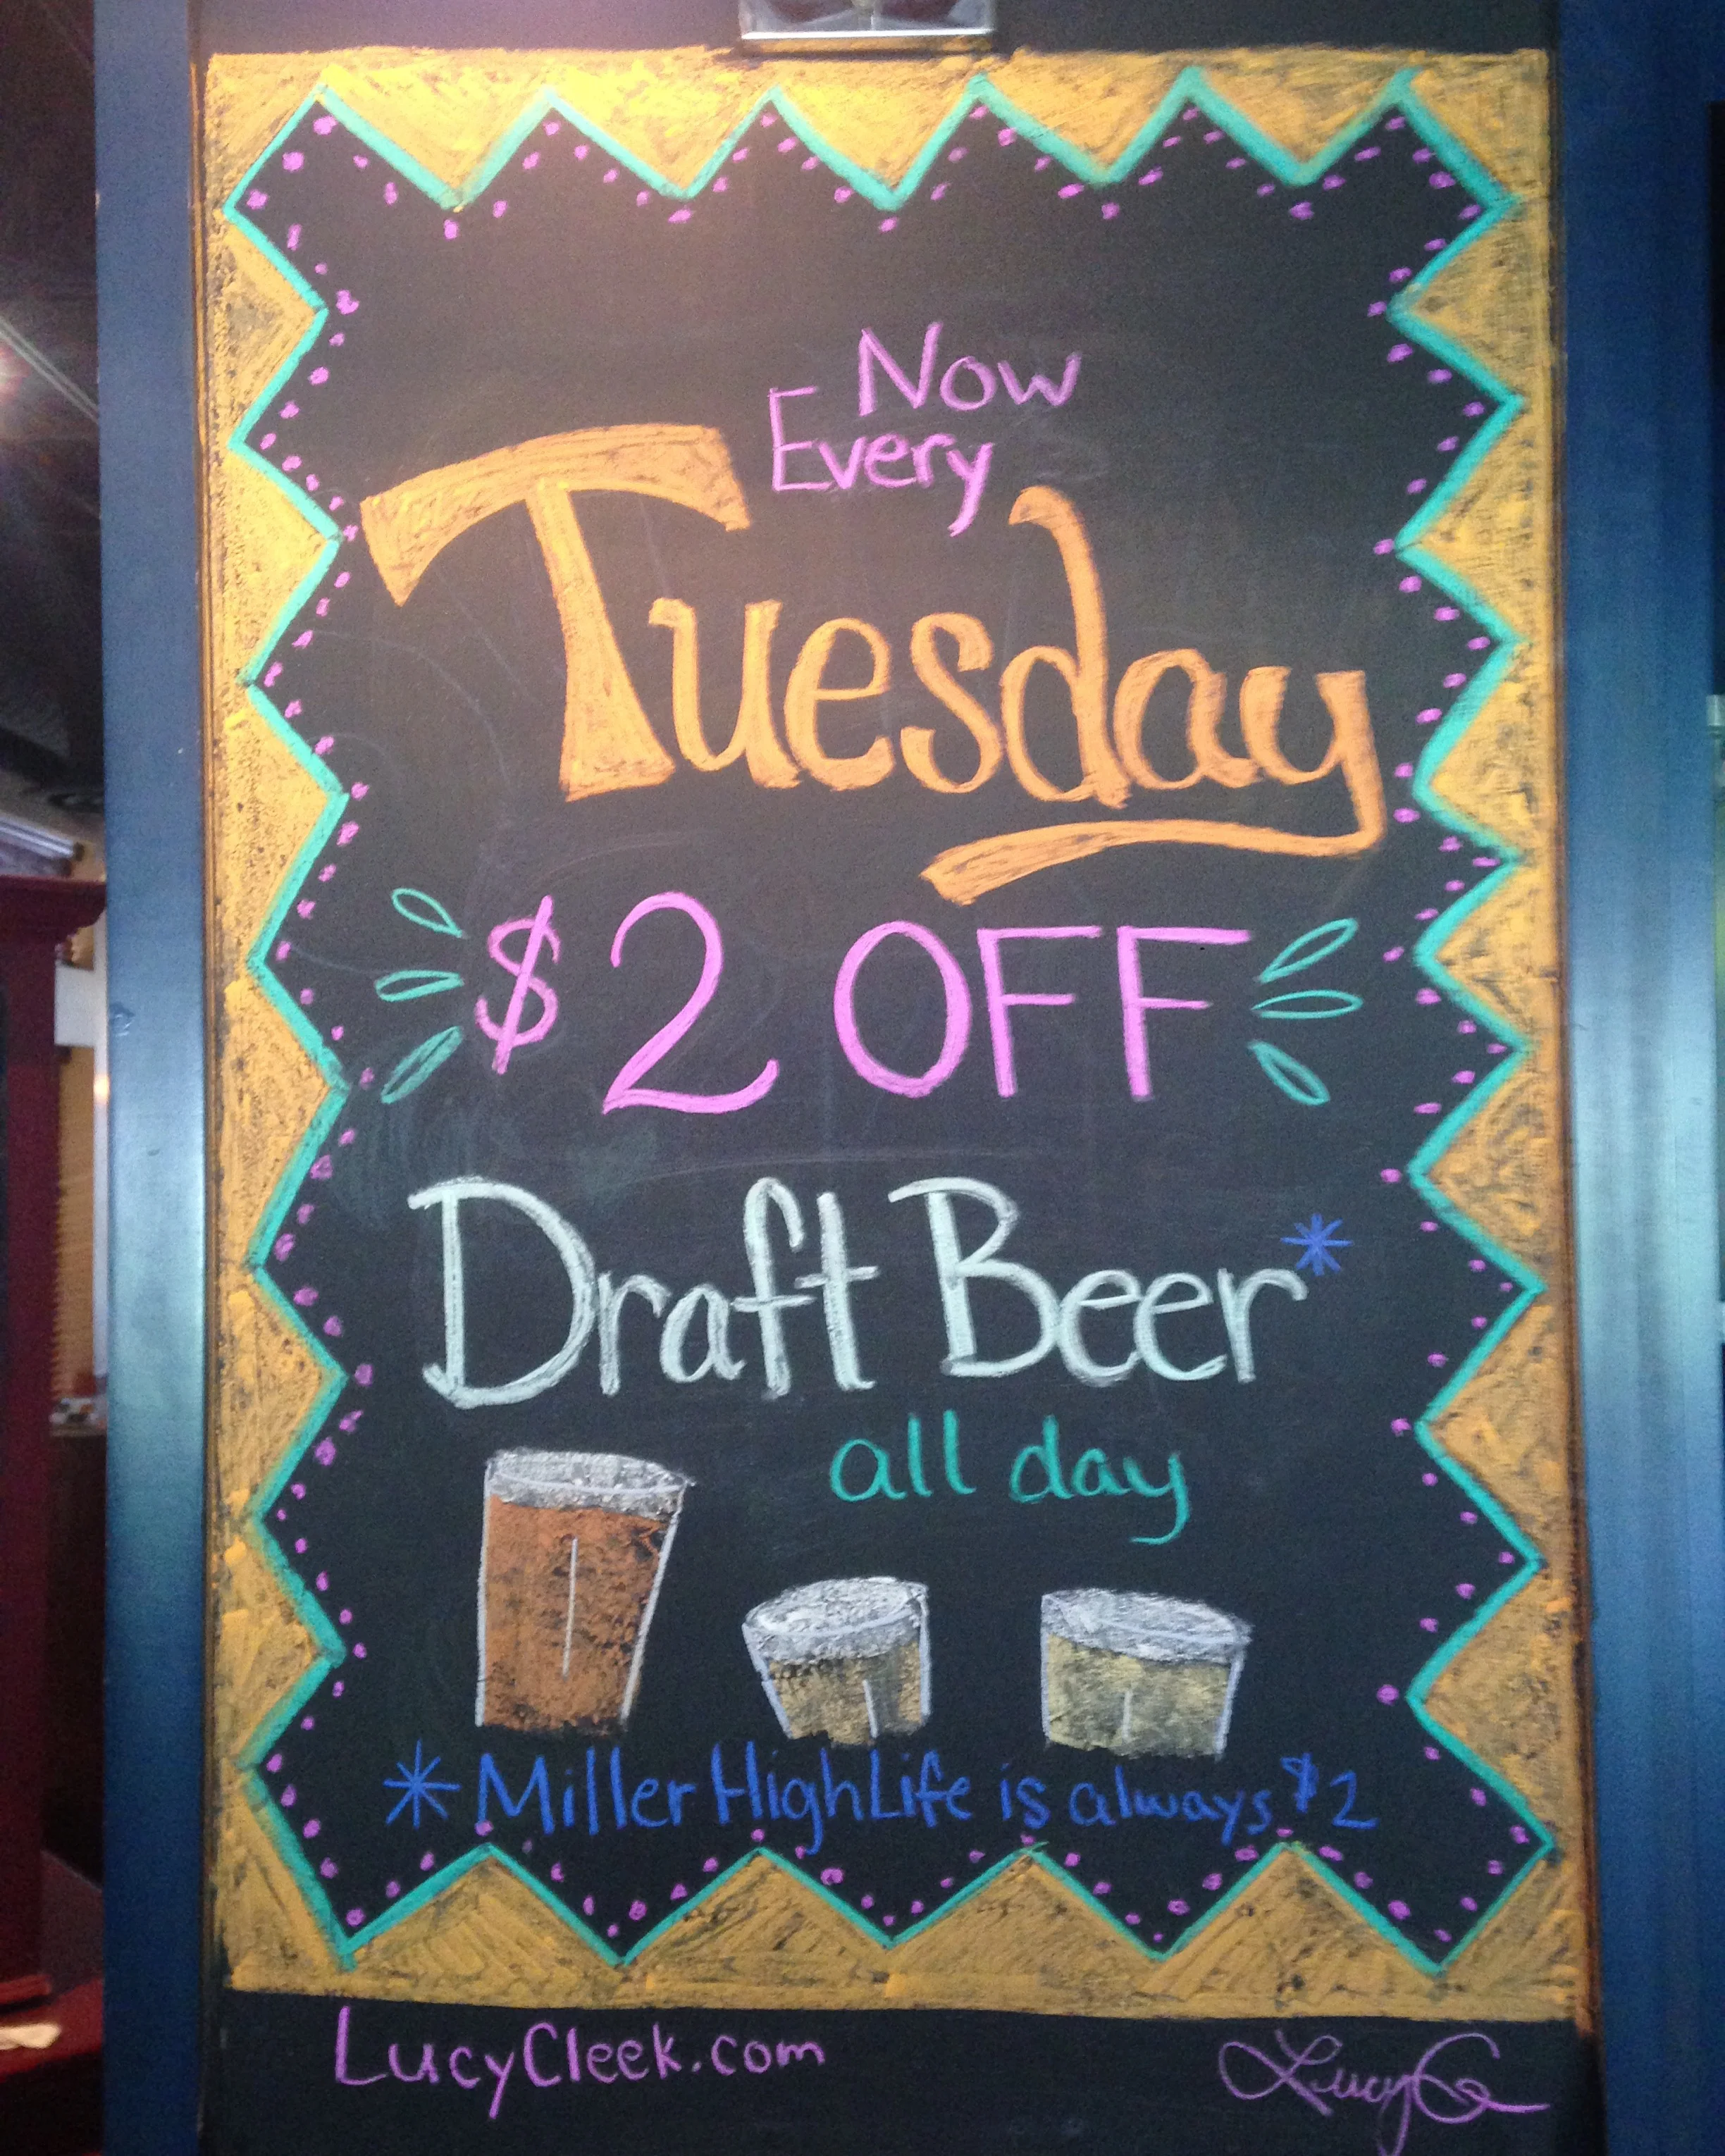 Now
Every
Tuesday
$2 OFF
Draft Beer*
all day
*Miller High Life is always $2
LucyCleek.com
LucyC